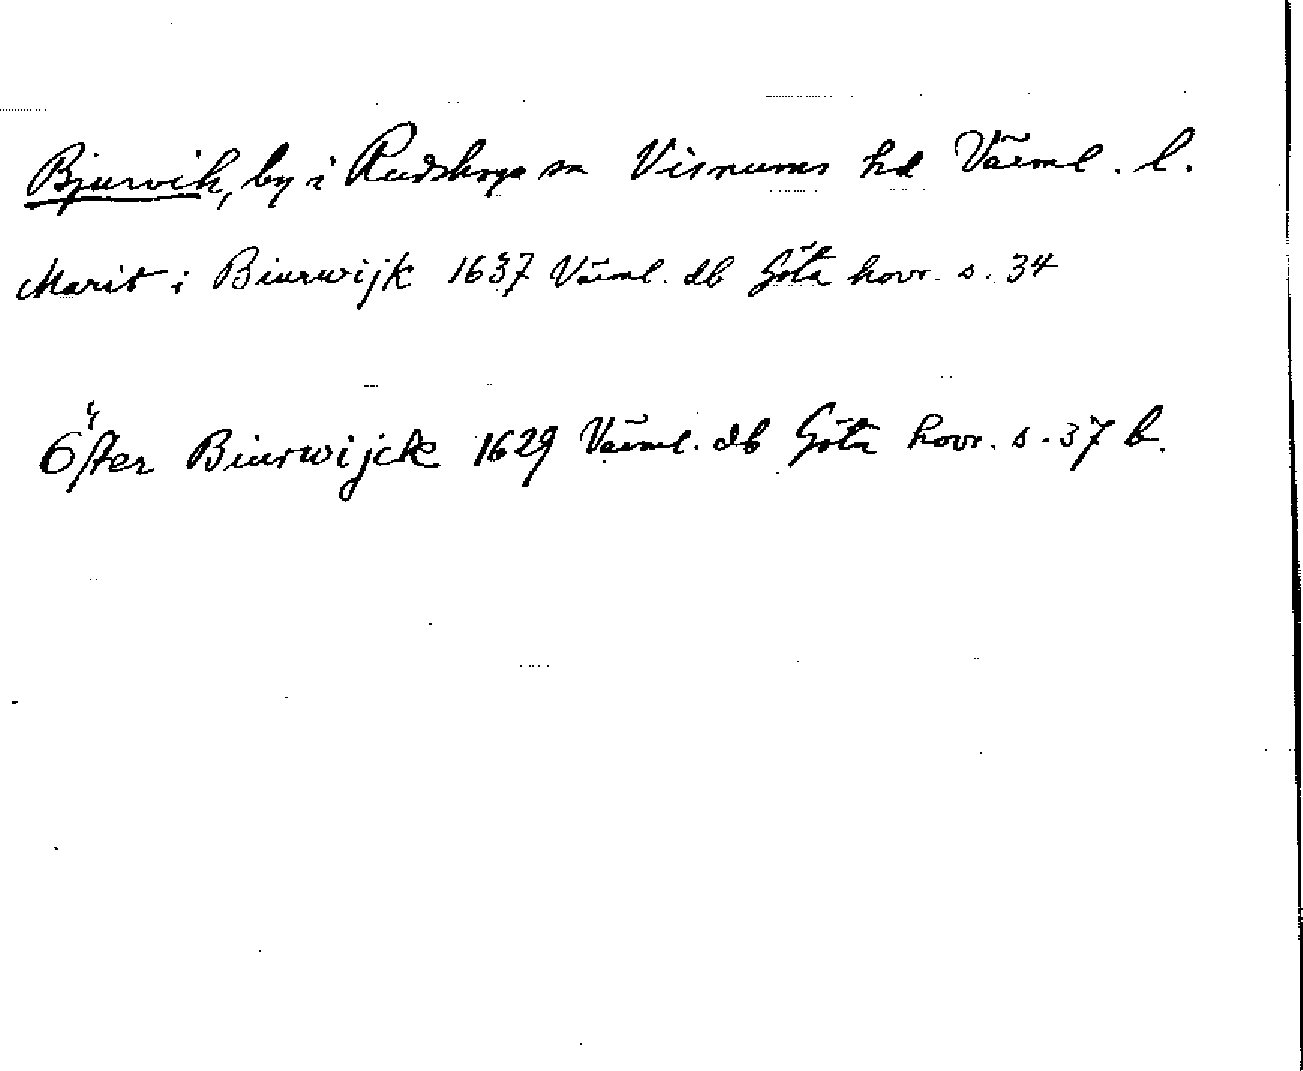 Bjurvik, by i Rudskoga sn Visnums hd Värml. l.
Marit i Biurwijk 1637 Värml. db Göta hovr. s. 34
Öfter Biurwijck 1629 Värml. db Göta hovr. s. 37 b.